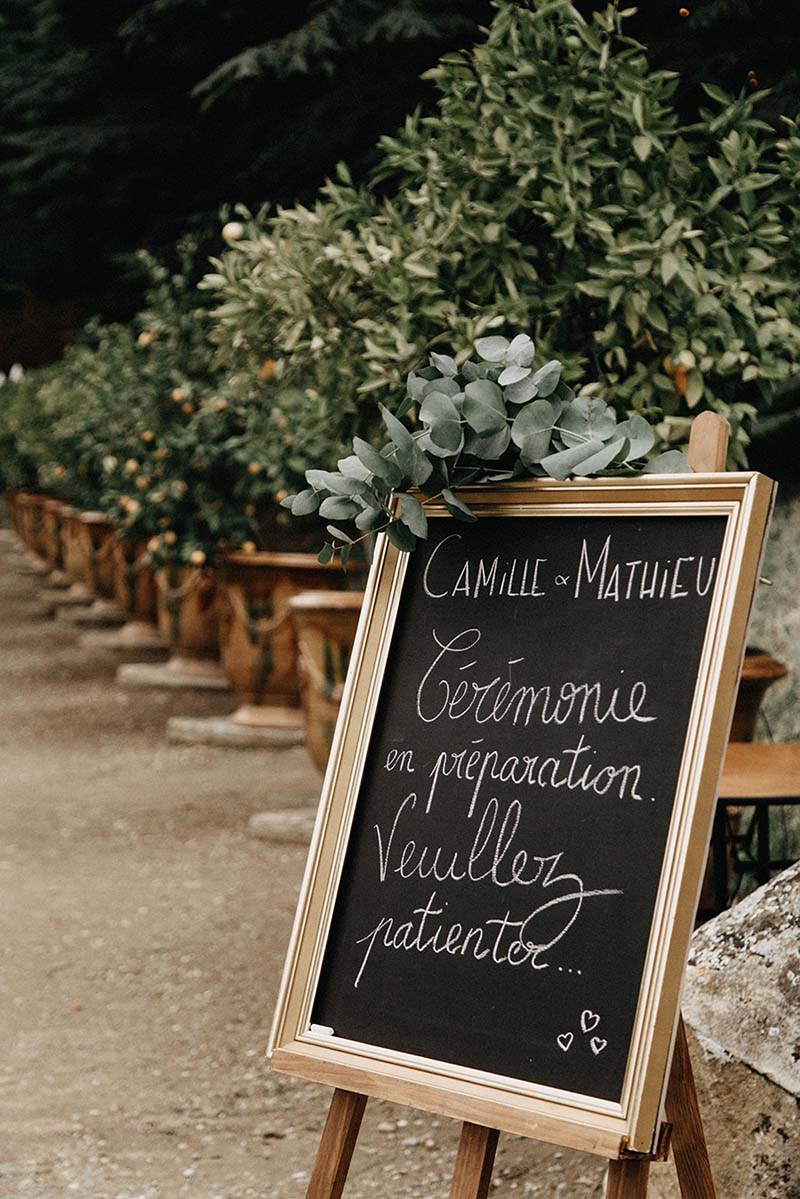 CAMILLE & MATHIEU
Cérémonie
en préparation.
Veuillez
patienter...